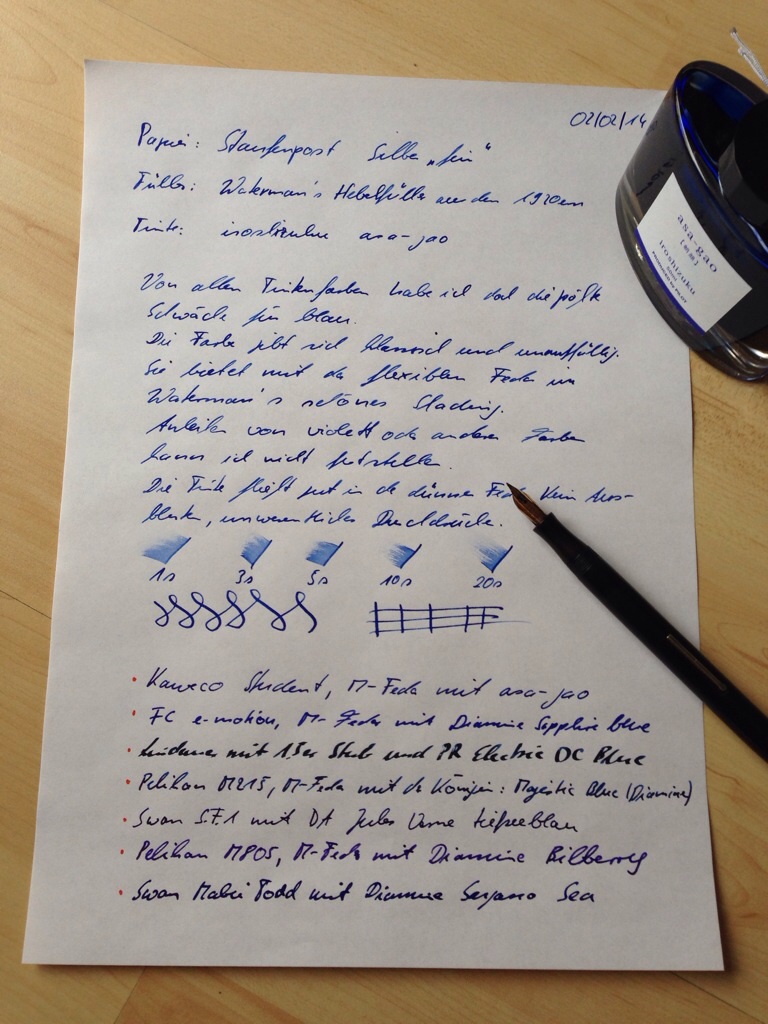 02/02/14
Papier: Staufenpost Silber „fein“
Füller: Waterman's Hebelfüller aus den 1920ern
Tinte: iroshizuku asa-gao
asa-gao
iroshizuku
Von allen Tintenfarben habe ich doch die größte
Schwäche für blau.
Die Farbe gibt sich klassisch und unauffällig.
Sie bietet mit der flexiblen Feder im
Waterman's schönes Shading.
Anteile von violett oder anderen Farben
kann ich nicht feststellen.
Die Tinte fließt gut in der dünnen Feder. Kein Aus-
bluten, unwesentliches Durchdrücken.
1s 3s 5s 10s 20s
Kaweco Student, M-Feder mit asa-gao
FC e-motion, M-Feder mit Diamine Sapphire blue
Lindauer mit 1.3er Stub und PR Electric DC Blue
Pelikan M215, M-Feder mit der Königin: Majestic Blue (Diamine)
Swan S.F.1 mit DA Jules Verne tiefseeblau
Pelikan M805, M-Feder mit Diamine Bilberry
Swan Mabie Todd mit Diamine Sargasso Sea